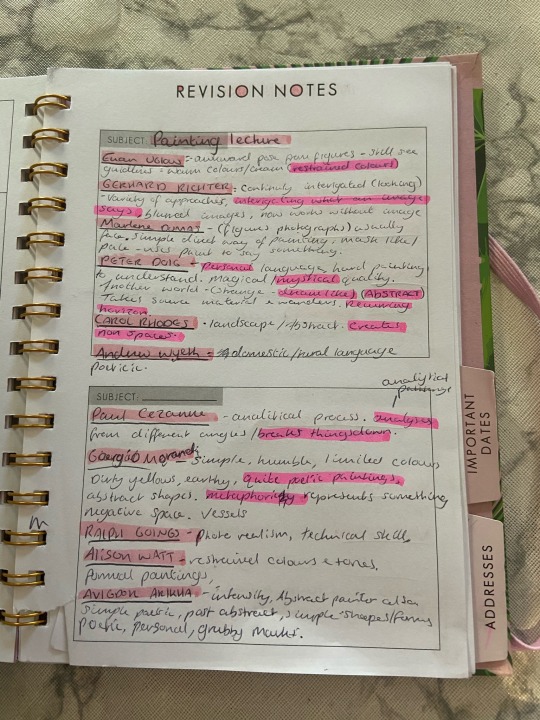 REVISION NOTES
SUBJECT: Painting lecture
Euan Uglow:- awkward pose from figures - still see
guidlines - warm colours/cream restrained colours
GERHARD RICHTER: Continuly interigated (looking)
- Variety of approaches, interigating what an image
says, blurred images, now works without image
Marlene Dumas - (figure photographs) usually
face. Simple direct way of painting, mask like/
pale - uses paint to say something.
PETER DOIG - Personal language, hard painting
to understand. magical/mystical quality.
Another world - (strange - dreamlike) (ABSTRACT)
Takes source material & wanders. Recurring
horizon
CAROL RHODES - landscape/Abstract. Creates
non spaces.
Andrew Wyeth - domestic/rural language
poeticic.
analytical
SUBJECT:
Paul Cezanne - analitical process. analyses
from different angles/breaks things down.
Giorgio Morandi - Simple, humble, limited colours
Dirty yellows, earthy, quite poetic paintings,
abstract shapes. metaphorically represents something
negative space. Vessels
RALPH GOINGS - Photo realism, technical skill.
ALISON WATT - restrained colours & tones,
formal paintings,
AVIGDOR ARIKHA - intensity, Abstract painter
simple poetic, post abstract, simple shapes/forms
Poetic, personal, grubby marks.
IMPORTANT
DATES
ADDRESSES